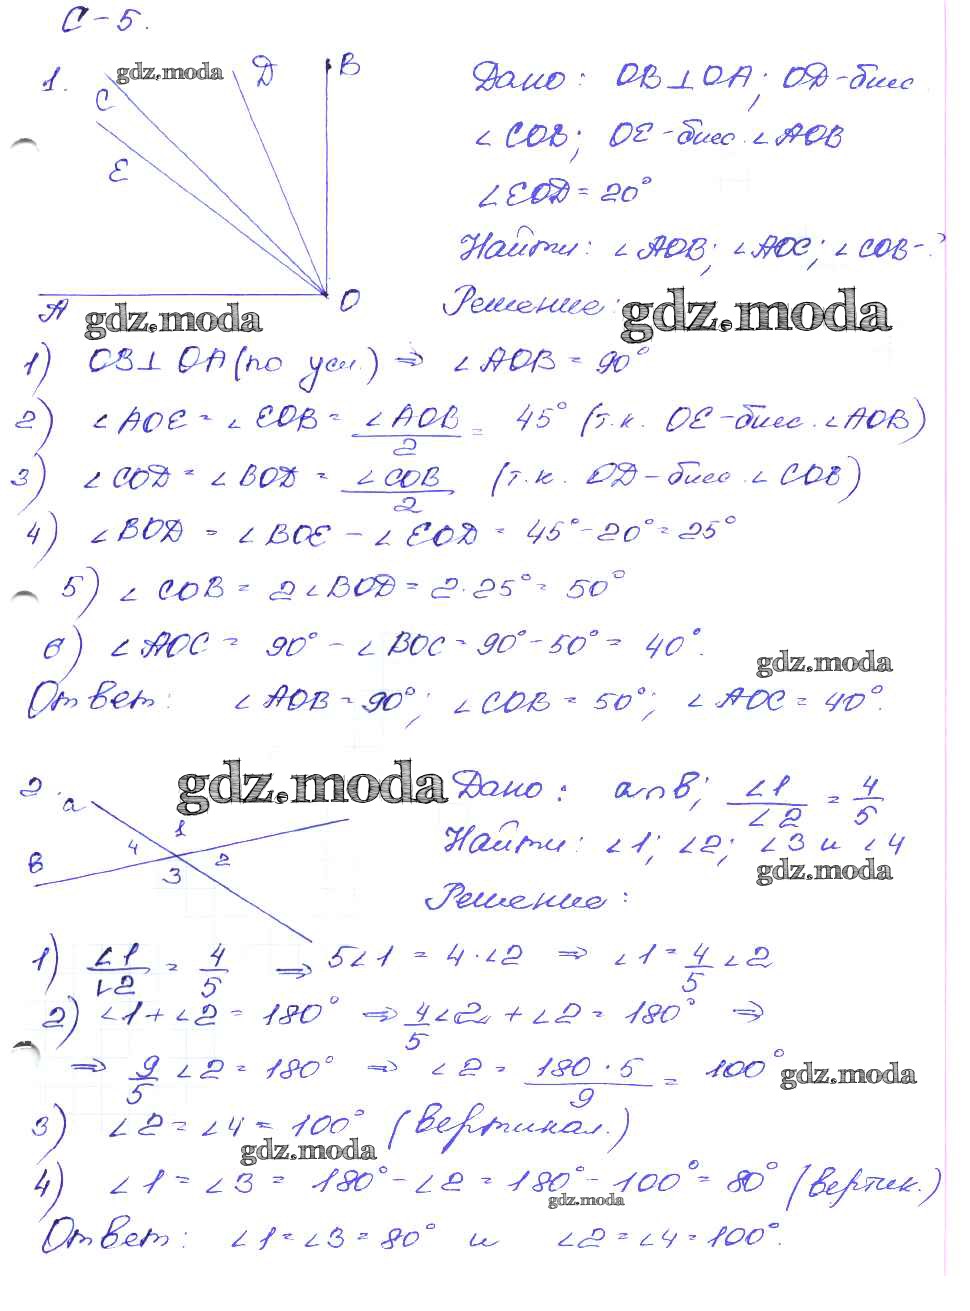 С-5.
1.
gdz.moda
C
D
B
E
A
O
Дано: OB⊥OA; OD-бисс.
∠COB; OE-бисс.∠AOB
∠EOD = 20°
Найти: ∠AOB; ∠AOC; ∠COB-?
gdz.moda
Решение:
gdz.moda
1) OB⊥OA (по усл.) ⇒ ∠AOB = 90°
2) ∠AOE = ∠EOB = ∠AOB/2 = 45° (т.к. OE-бисс.∠AOB)
3) ∠COD = ∠BOD = ∠COB/2 (т.к. OD-бисс.∠COB)
4) ∠BOD = ∠BOE - ∠EOD = 45°-20°=25°
5) ∠COB = 2∠BOD = 2·25°= 50°
6) ∠AOC = 90° - ∠BOC = 90°-50°= 40°.
gdz.moda
Ответ: ∠AOB = 90°; ∠COB = 50°; ∠AOC = 40°.
2.
gdz.moda
a
1
4
2
3
в
Дано: a∩в; ∠1/∠2 = 4/5
Найти: ∠1; ∠2; ∠3 и ∠4
gdz.moda
Решение:
1) ∠1/∠2 = 4/5 ⇒ 5∠1 = 4·∠2 ⇒ ∠1 = 4/5 ∠2
2) ∠1+∠2 = 180° ⇒ 4/5∠2 + ∠2 = 180° ⇒
⇒ 9/5 ∠2 = 180° ⇒ ∠2 = 180·5/9 = 100°
gdz.moda
3) ∠2 = ∠4 = 100° (вертикал.)
gdz.moda
4) ∠1 = ∠3 = 180°-∠2 = 180°-100°= 80° (вертик.)
gdz.moda
Ответ: ∠1=∠3=80° и ∠2=∠4=100°.